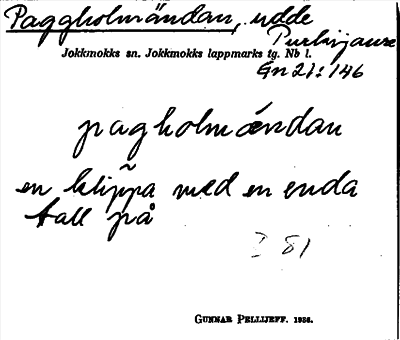 Paggholmändan, udde
Purkijaure
Jokkmokks sn. Jokkmokks lappmarks tg. Nb l.
Gn 21:146
pagholmǽndan
en klippa med en enda
tall på
I 81
GUNNAR PELLIJEFF. 1956.